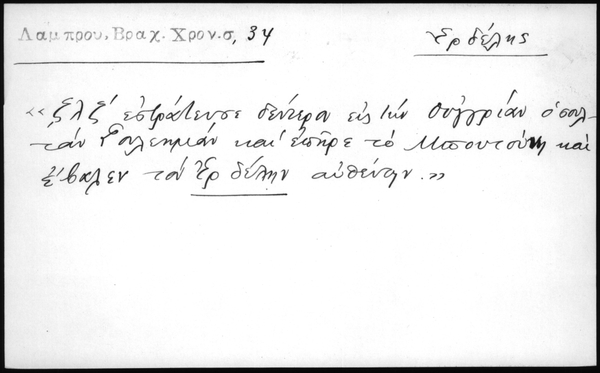 Λαμπρου, Βραχ. Χρον. σ, 34
Ἐρδέλης
«ζλζ΄ ἐστράτευσε δεύτερα εἰς τὴν Οὐγγρίαν ὁ σουλ-
τάν Σουλεημάν καὶ ἐπῆρε τὸ Μπουτούνη καὶ
ἔβαλεν τὸν Ἐρδέλην αὐθέντην.»